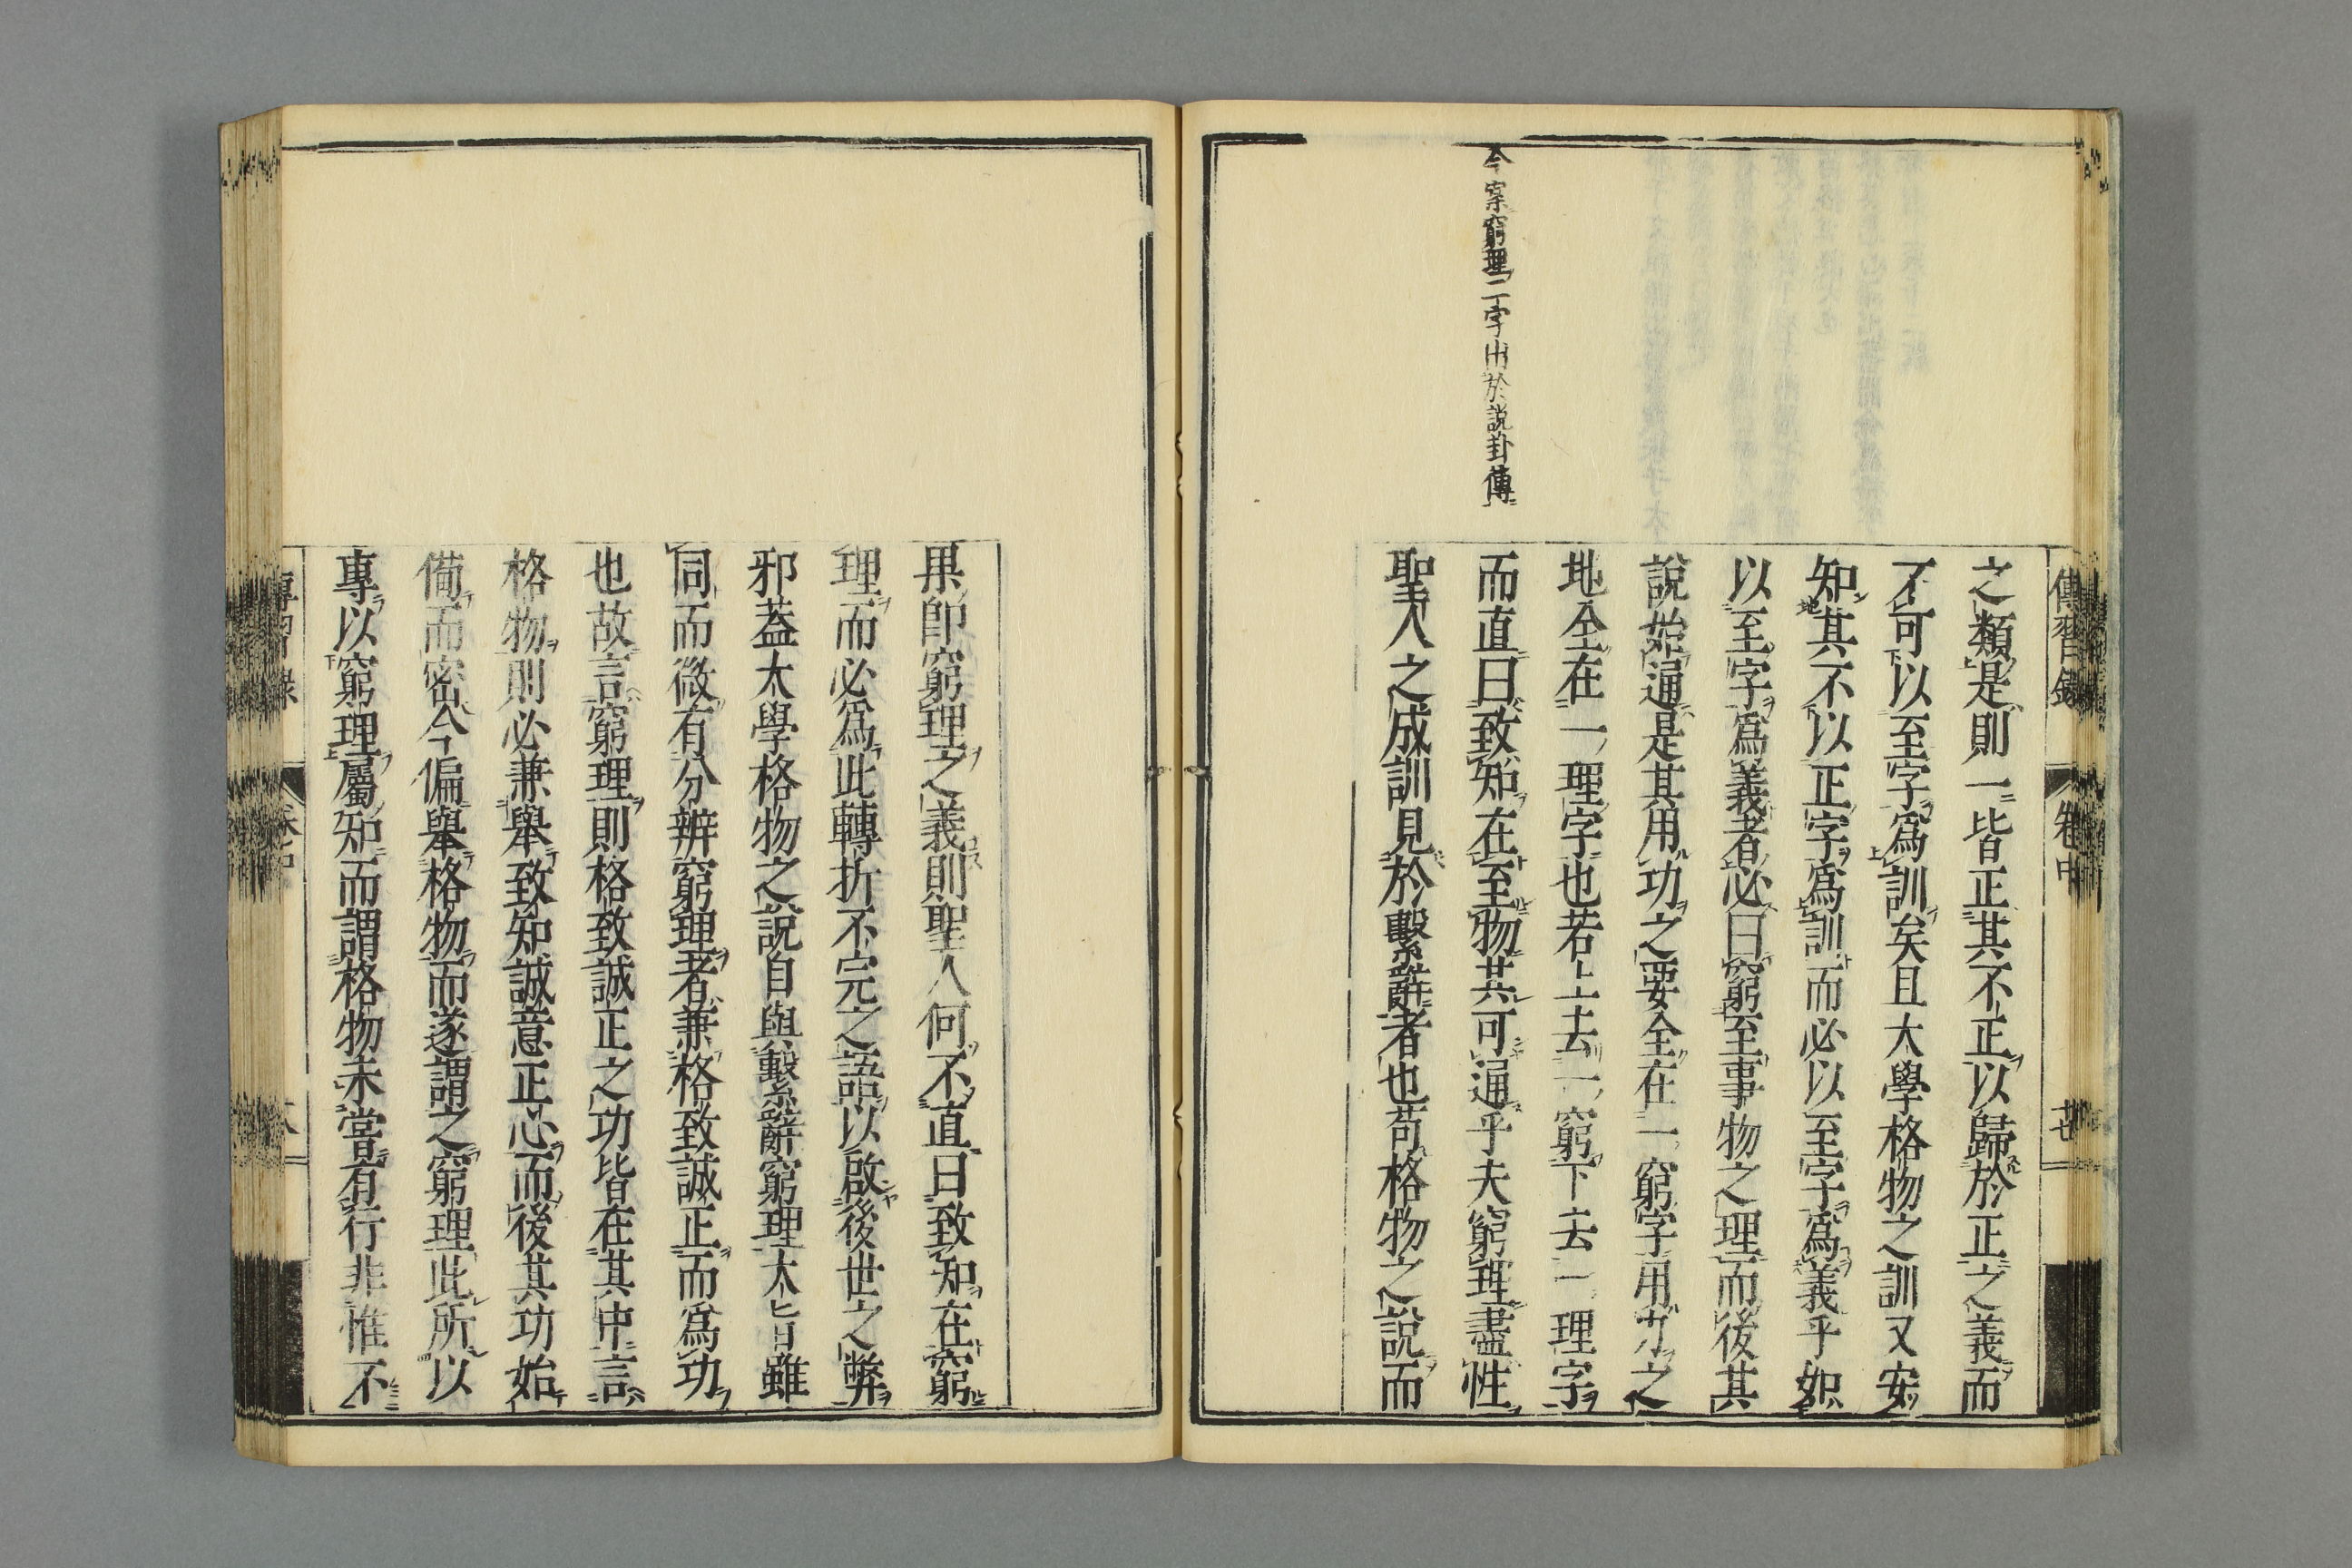 傳習錄
卷中
廿七
今案窮理二字出於説卦傳
之類是則一皆正其不正以歸於正之義而
不可以至字爲訓矣且大學格物之訓又安
知其不以正字爲訓而必以至字爲義乎如
以至字爲義者必曰窮至事物之理而後其
說始通是其用功之要全在一窮字用力之
地全在一理字也若上去一窮下去一理字
而直曰致知在至物其可通乎夫窮理盡性
聖人之成訓見於繫辭者也苟格物之說而
果即窮理之義則聖人何不直曰致知在窮
理而必爲此轉折不完之語以啟後世之弊
邪蓋大學格物之說自與繫辭窮理大旨雖
同而微有分辨窮理者兼格致誠正而爲功
也故言窮理則格致誠正之功皆在其中言
格物則必兼舉致知誠意正心而後其功始
備而密今偏舉格物而遂謂之窮理此所以
專以窮理屬知而謂格物未嘗有行非惟不